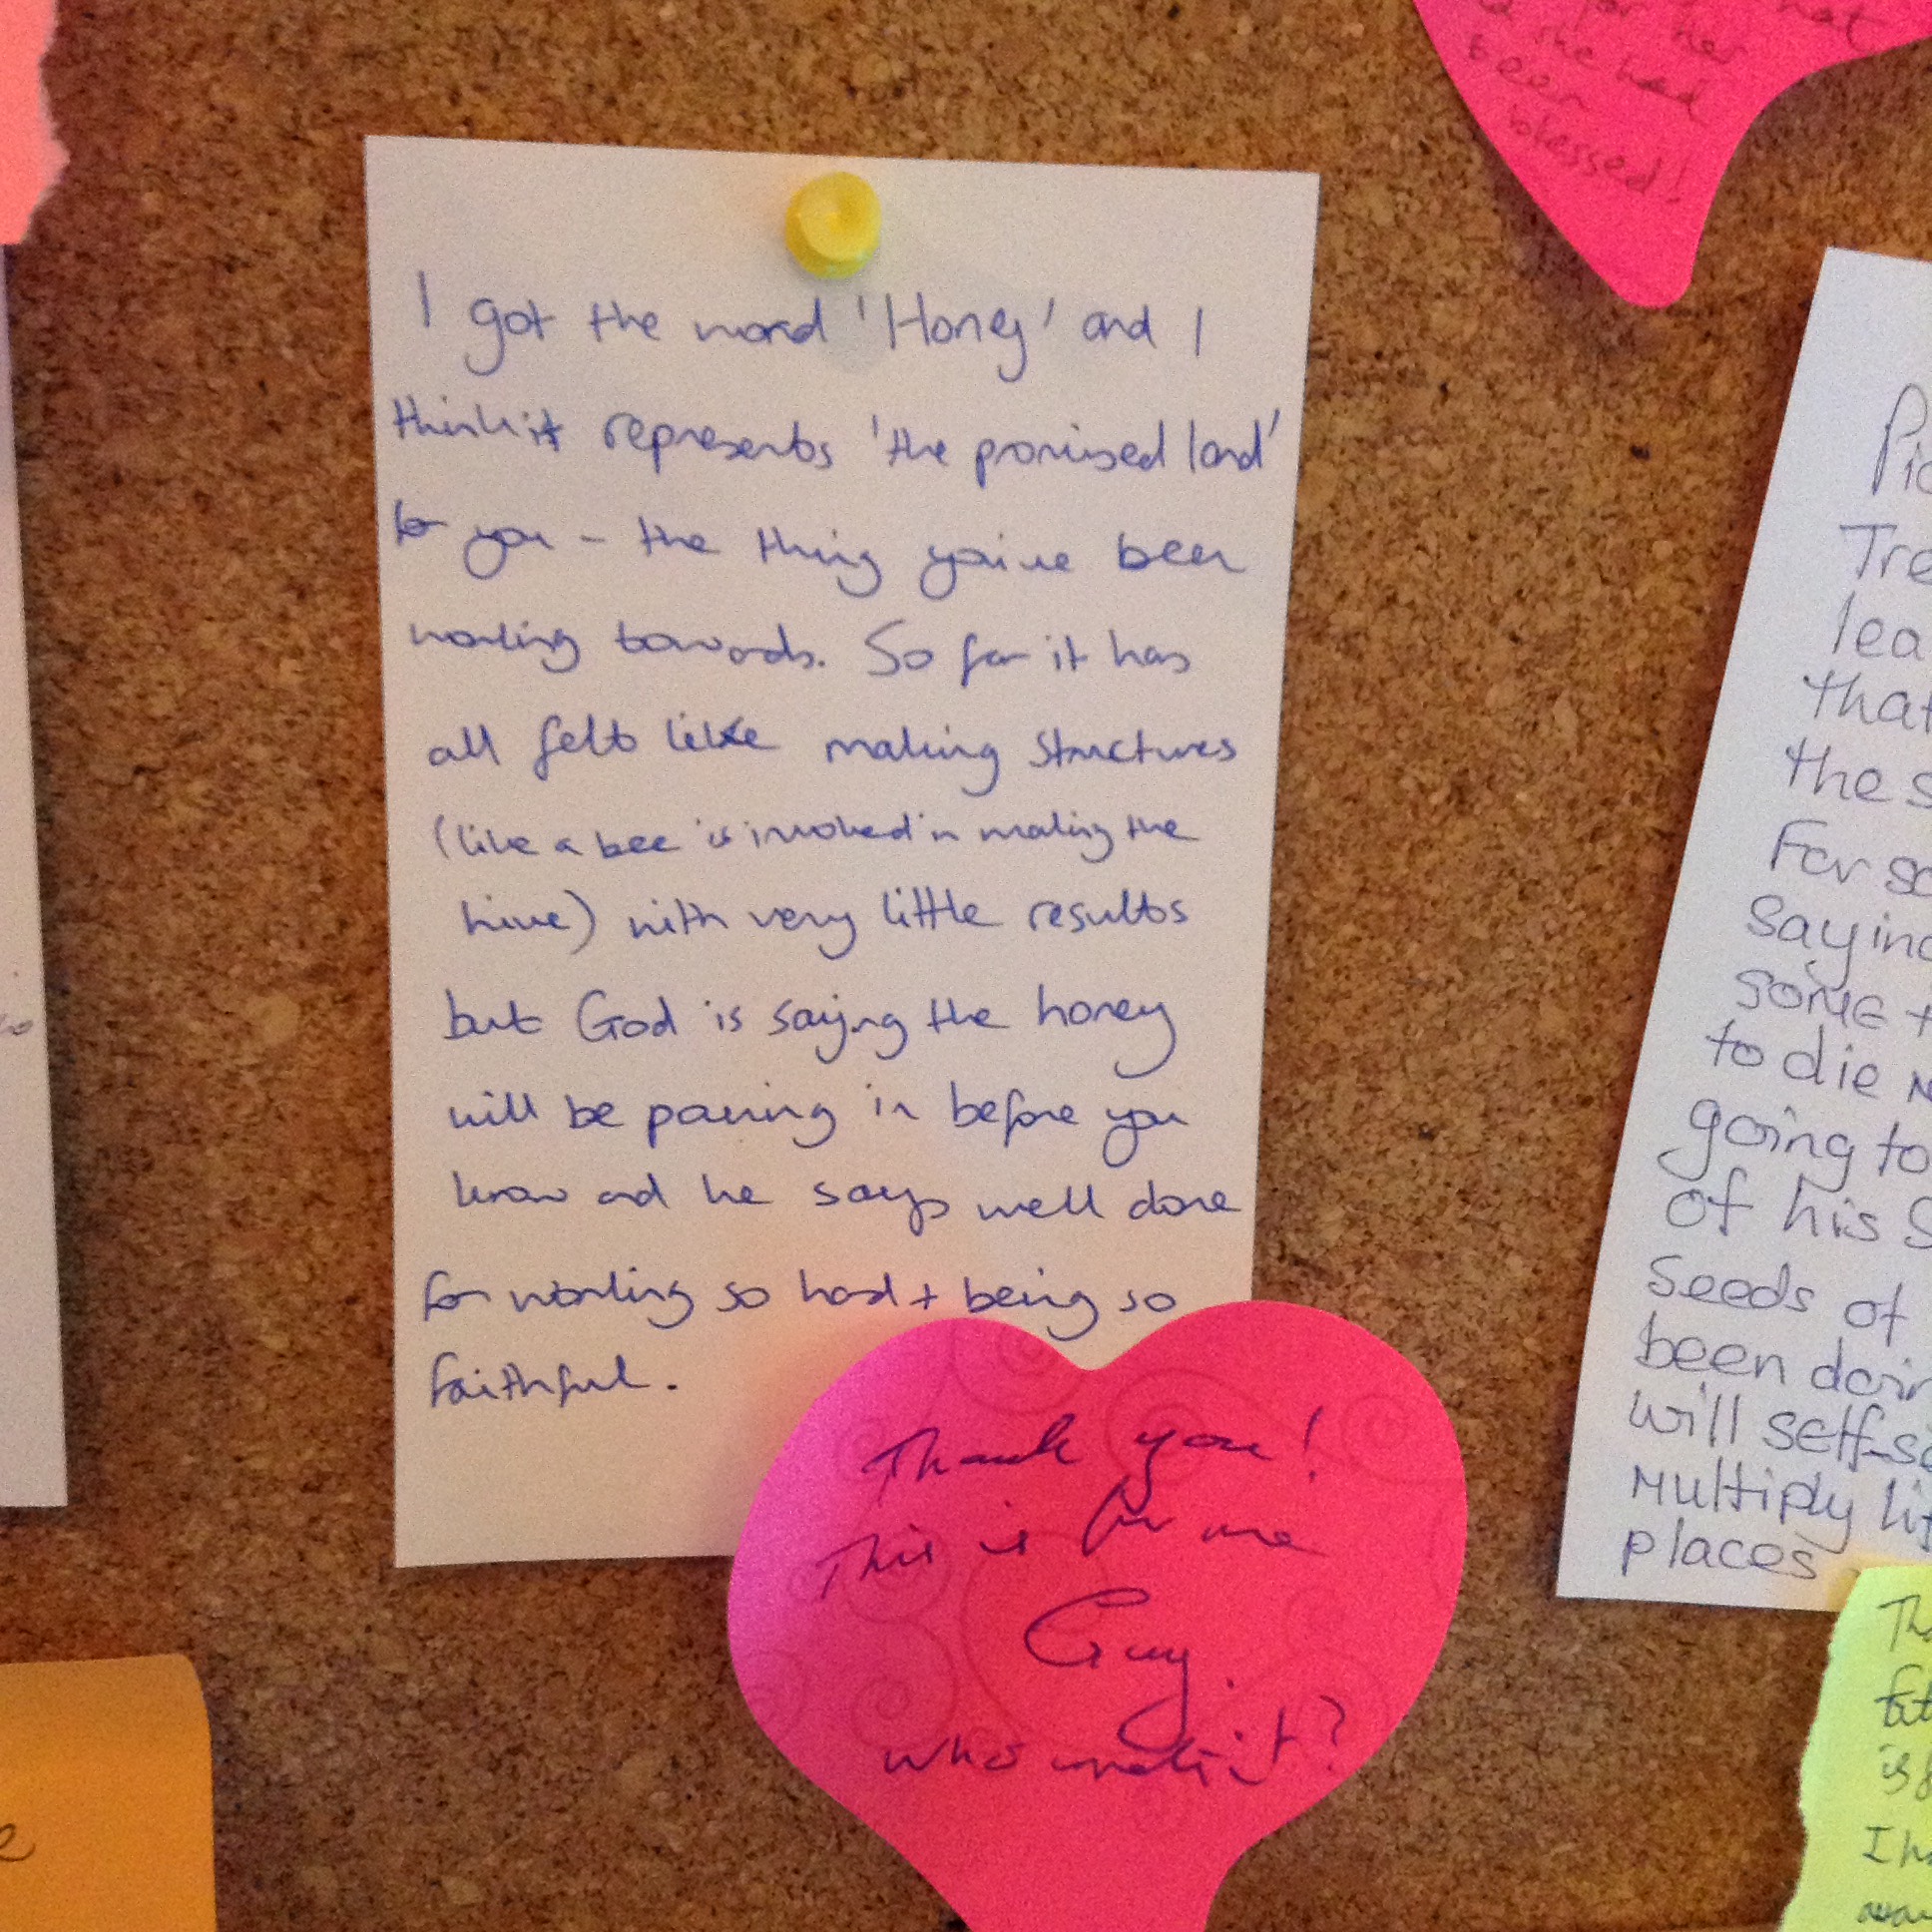 I got the word 'Honey' and I
think it represents 'the promised land'
for you - the thing you've been
working towards. So far it has
all felt like making structures
(like a bee is involved in making the
hive) with very little results
but God is saying the honey
will be pouring in before you
know and he says well done
for working so hard + being so
faithful.
Thank you!
This is for me
Guy.
who wrote it?
for her
she had
been
blessed!
Pic
Tre
lea
that
the s
For so
Saying
some t
to die
going to
of his s
Seeds of
been doin
will self-se
Multiply li
places
Th
is
I ha